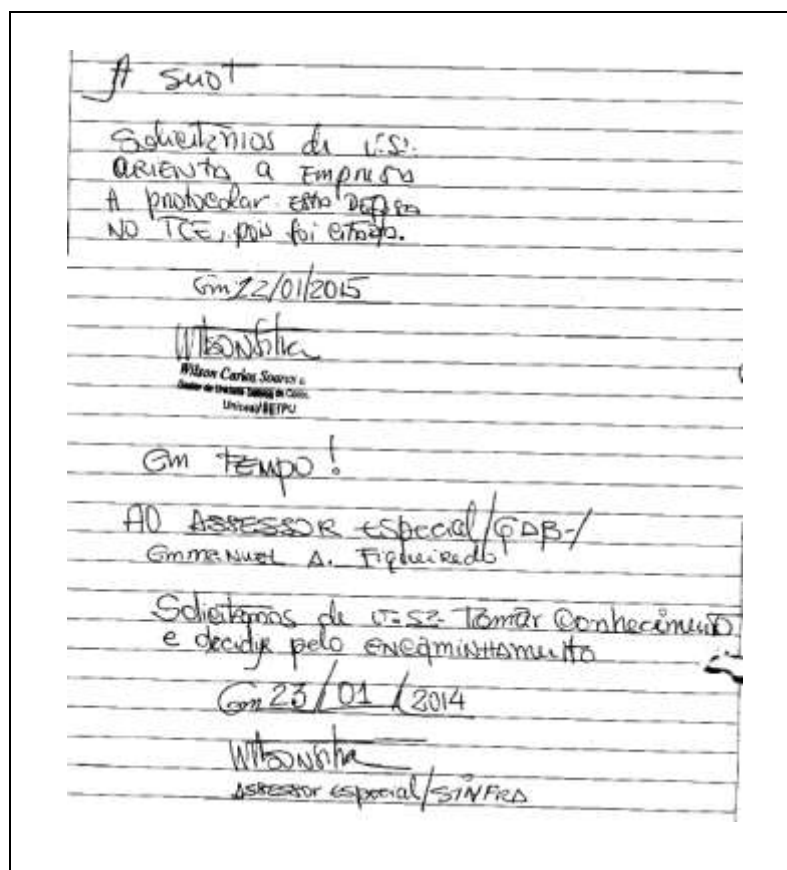 A SUOT
Solicitamos de V.Sª.
ORIENTA a Empresa
A protocolar esta Defesa
NO TCE, pois foi citada.
Em 22/01/2015
Wilson Silva
Wilson Carlos Soares
Unisea/SETPU
Em TEMPO!
AO ASSESSOR especial/GAB-/
Emmanuel A. Figueiredo
Solicitamos de V.Sª. Tomar Conhecimento
e decidir pelo encaminhamento
Em 23/01/2014
Wilson Silva
Assessor especial/SINFRA